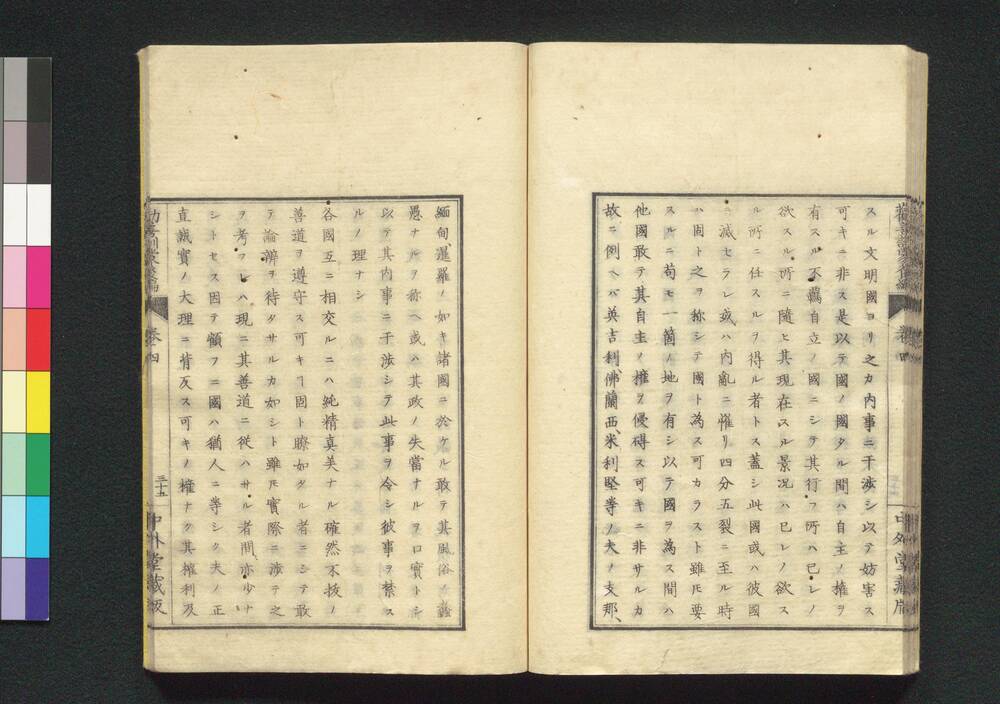 スル文明國ヨリ之カ內事ニ干渉シ以テ妨害ス
可キニ非ス是以テ國ノ國タル間ハ自主ノ權ヲ
有スル不羈自立ノ國ニシテ其行フ所ハ已レノ
欲スル所ニ隨ヒ其現在スル景況ハ已レノ欲ス
ル所ニ任スルヲ得ル者トス蓋シ此國或ハ彼國
ニ滅セラレ或ハ內亂ニ罹リ四分五裂ニ至ル時
ハ固ト之ヲ稱シテ國ト為ス可カラスト雖𪜈要
スルニ苟モ一箇ノ地ヲ有シ以テ國ヲ為ス間ハ
他國敢テ其自主ノ權ヲ優碍ス可キニ非サルカ
故ニ例ヘバ英吉利、佛蘭西、米利堅等ノ大ノ支那、
卷四
中外堂藏版
緬甸、暹羅ノ如キ諸國ニ於ケル敢テ其風俗ノ蠢
愚ナルヲ称ヘ或ハ其政ノ失當ナルヲ口實トシ
以テ其內事ニ干渉シテ此事ヲ令シ彼事ヲ禁ス
ルノ理ナシ
各國互ニ相交ルニハ純精真美ナル確然不拔ノ
善道ヲ遵守ス可キヿ固ト瞭如タル者ニシテ敢
テ論辨ヲ待タサルカ如シト雖𪜈實際ニ渉テ之
ヲ考フレハ現ニ其善道ニ從ハサル者間、亦少ナ
シトセス因テ顧フニ國ハ猶人ニ等シク夫ノ正
直誠實ノ大理ニ背反ス可キノ權ナク其權利及
卷四
三十五
中外堂藏版